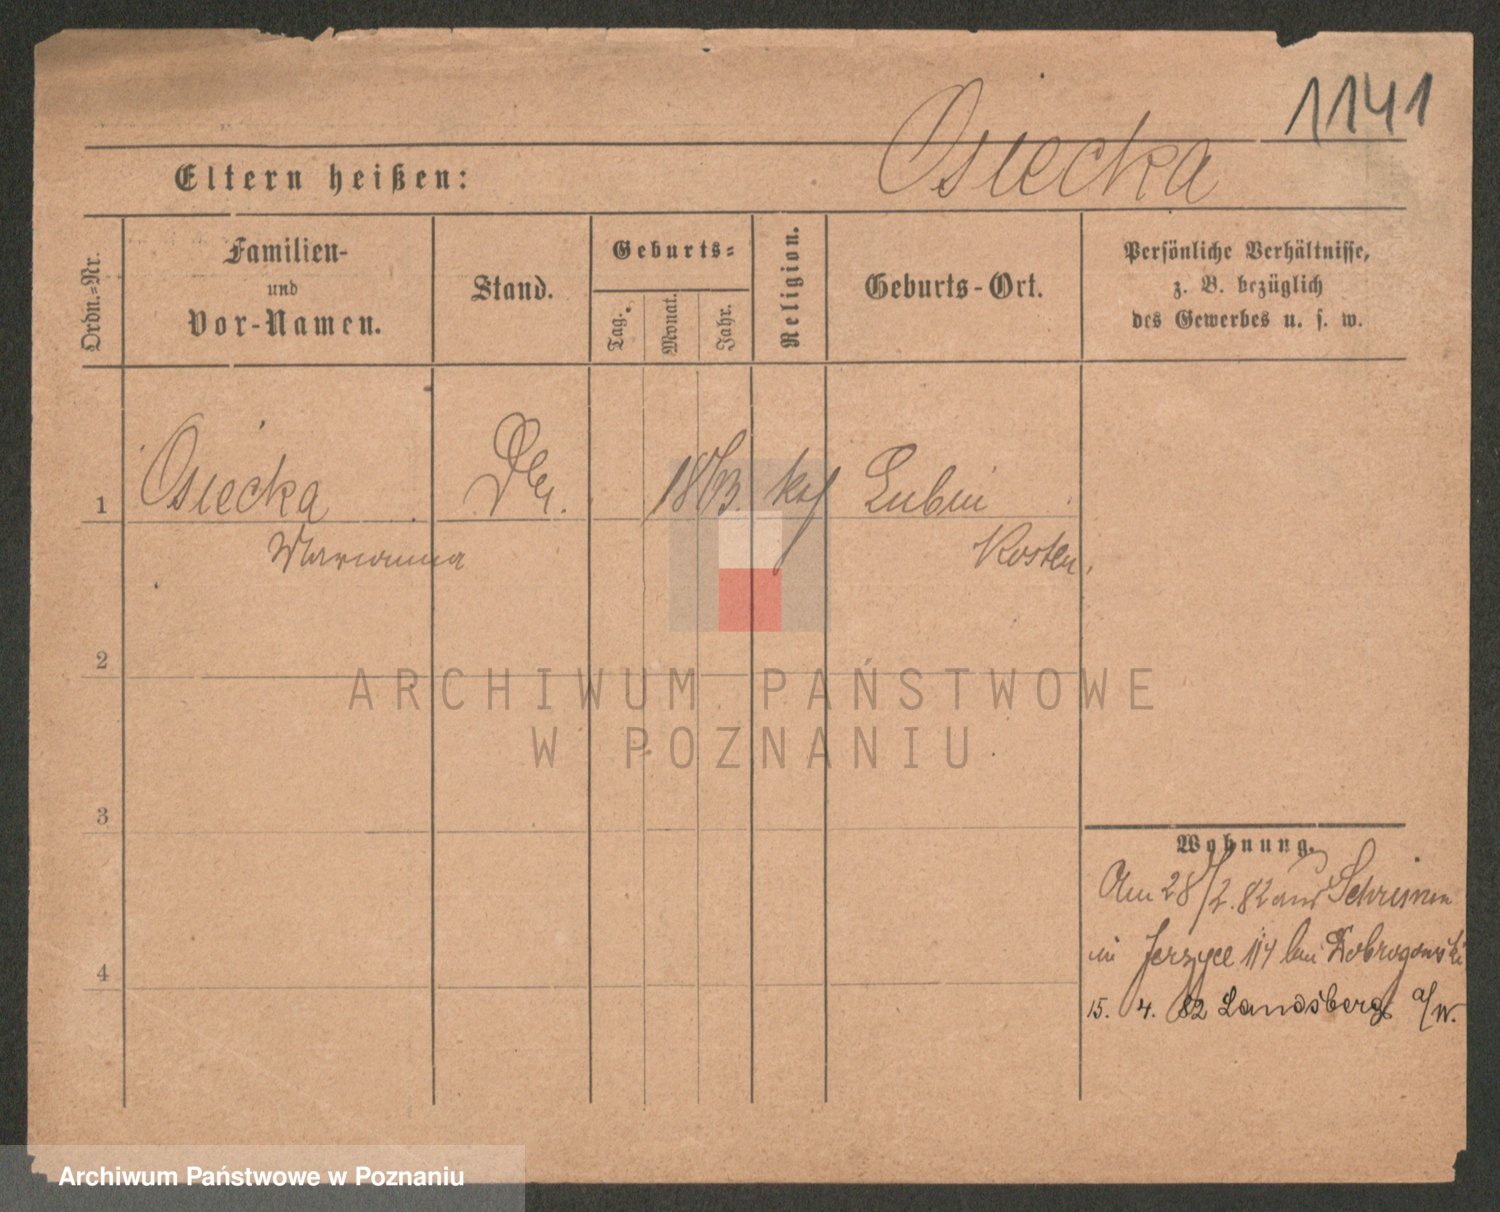 1141
Osiecka
Eltern heißen:
Ordn.-Nr.
Familien-
und
Vor-Namen.
Stand.
Geburts-
Tag.
Monat.
Jahr.
Religion.
Geburts-Ort.
Persönliche Verhältnisse,
z. B. bezüglich
des Gewerbes u. s. w.
1 Osiecka 1863. kaf Lubin
Marianna Kosten.
2
ARCHIWUM PAŃSTWOWE
W POZNANIU
3
Wohnung.
Am 28/2. 82 aus Schrimm
in Jerzyce 114 bei Dobrogowski
4
15. 4. 82 Landsberg a/W.
Archiwum Państwowe w Poznaniu